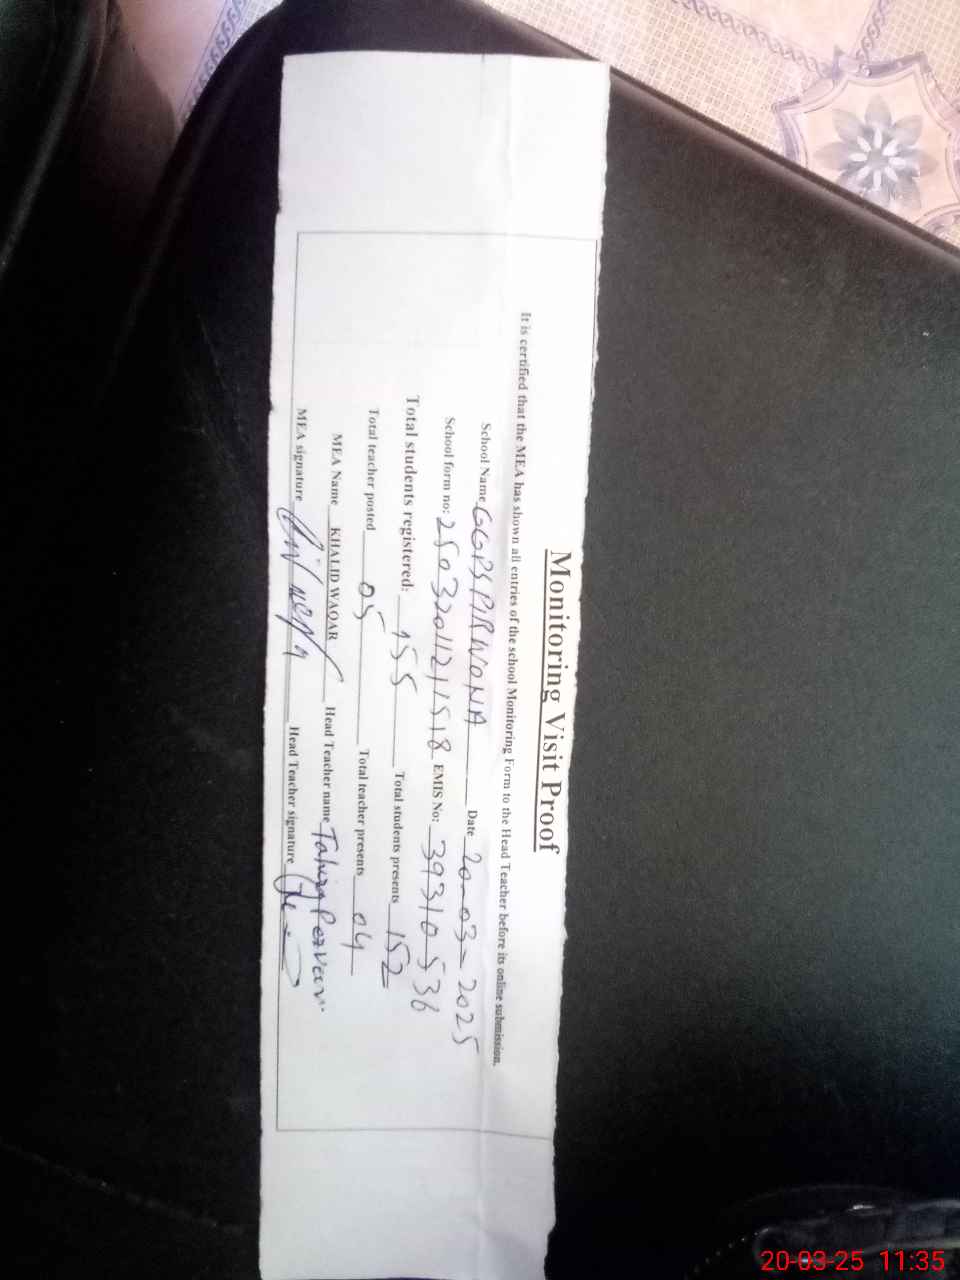 Monitoring Visit Proof
It is certified that the MEA has shown all entries of the school Monitoring Form to the Head Teacher before its online submission.
School Name GGPS PIRWONA Date 20-03-2025
School form no: EMIS No: 39310536
Total students registered: 155 Total students presents 152
Total teacher posted 05 Total teacher presents 04
MEA Name KHALID WAQAR Head Teacher name Tahira Perveen
MEA signature Head Teacher signature
20-03-25 11:35